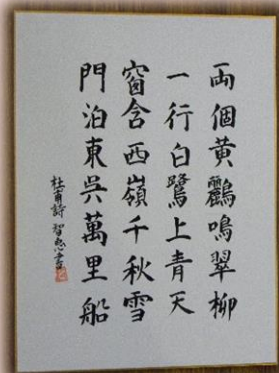 両個黄鸝鳴翠柳
一行白鷺上青天
窗含西嶺千秋雪
門泊東呉萬里船
杜甫詩 智恵書